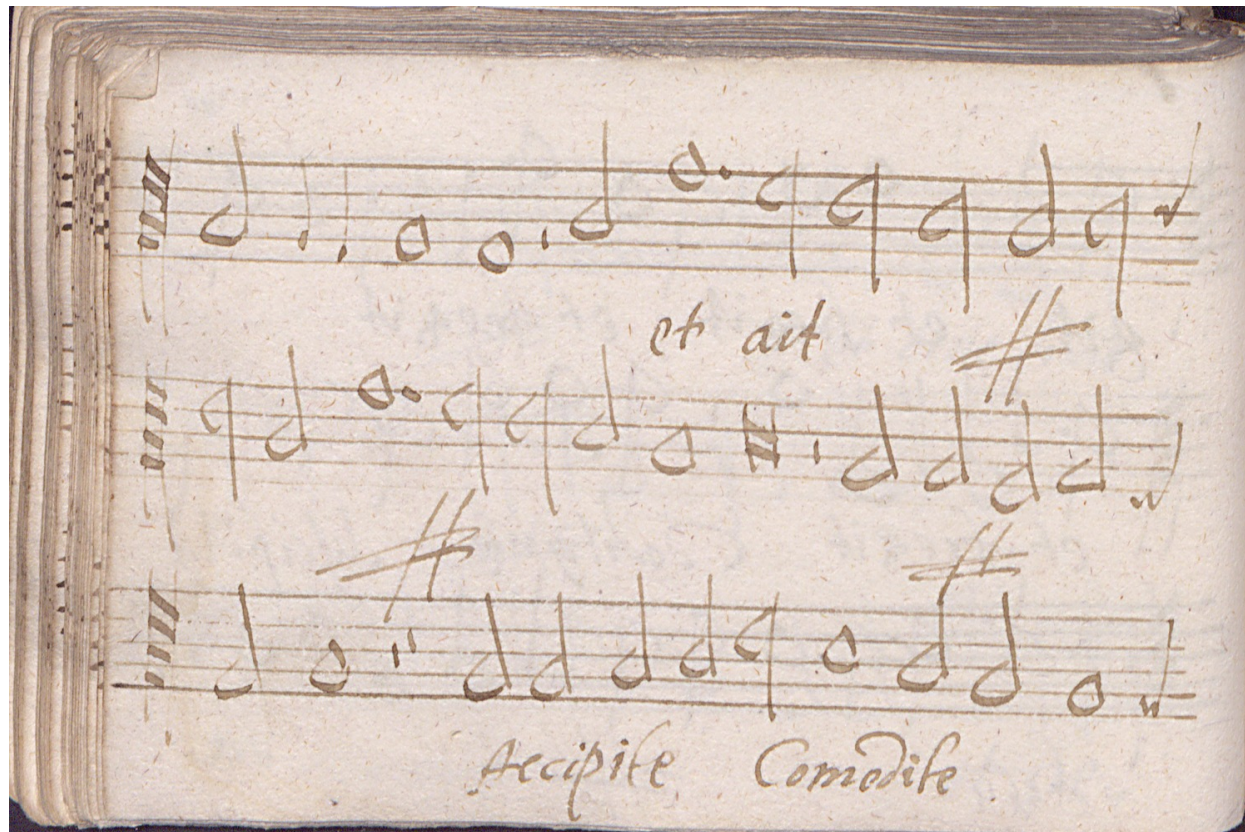 et ait
Accipite Comedite